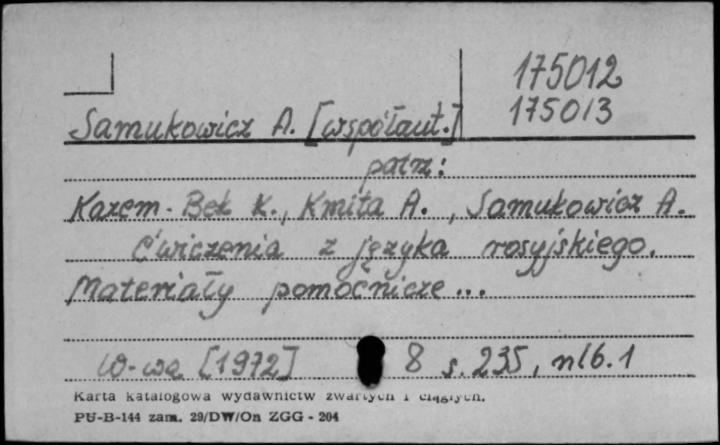 175012
175013
Samukowicz A. [współaut.]
patrz:
Kazem-Bek K., Kmita A., Samukowicz A.
Ćwiczenia z języka rosyjskiego.
Materiały pomocnicze...
W-wa [1972] 8 s. 235, nlb. 1
Karta katalogowa wydawnictw zwartych i ciągłych.
PU-B-144 zam. 29/DW/On ZGG - 204